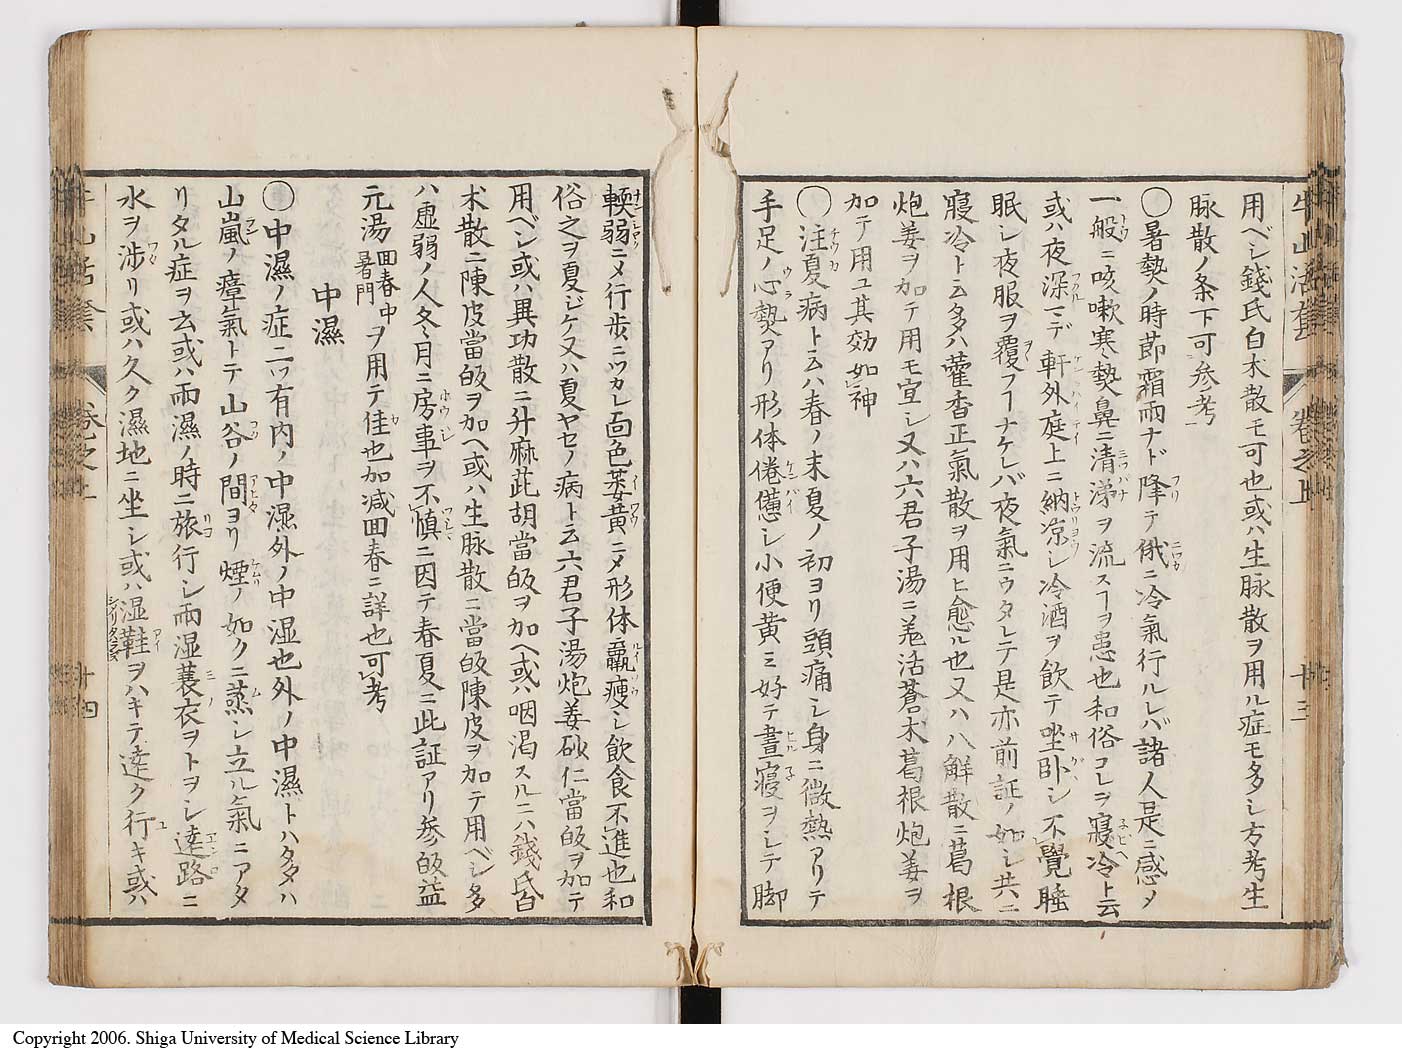 牛山活套 卷之上 十三
用ベシ錢氏白朮散モ可也或ハ生脉散ヲ用ル症モ多シ方考生
脉散ノ条下可参考
○暑熱ノ時節霜雨ナド降テ俄ニ冷氣行ルレバ諸人是ニ感メ
一般ニ咳嗽寒熱鼻ニ清涕ヲ流スヿヲ患也和俗コレヲ寢冷ト云
或ハ夜深マデ軒外庭上ニ納凉シ冷酒ヲ飲テ坐卧シ不覺睡
眠シ夜服ヲ覆フヿナケレバ夜氣ニウタレテ是亦前証ノ如シ共ニ
寢冷ト云多ハ藿香正氣散ヲ用ヒ愈ル也又ハ八解散ニ葛根
炮姜ヲ加テ用モ宜シ又ハ六君子湯ニ羌活蒼朮葛根炮姜ヲ
加テ用ユ其効如神
○注夏病ト云ハ春ノ末夏ノ初ヨリ頭痛シ身ニ微熱アリテ
手足ノ心熱アリ形体倦憊シ小便黄ミ好テ晝寢ヲシテ脚
輭弱ニメ行歩ニツカレ面色萎黄ニメ形体羸瘦シ飲食不進也和
俗之ヲ夏ジケ又ハ夏ヤセノ病ト云六君子湯炮姜砂仁當皈ヲ加テ
用ベシ或ハ異功散ニ升麻茈胡當皈ヲ加ヘ或ハ咽渇スルニハ錢氏白
朮散ニ陳皮當皈ヲ加ヘ或ハ生脉散ニ當皈陳皮ヲ加テ用ベシ多
ハ虚弱ノ人冬月ニ房事ヲ不慎ニ因テ春夏ニ此証アリ参皈益
元湯回春中暑門ヲ用テ佳也加减回春ニ詳也可考
中濕
○中濕ノ症二ツ有内ノ中濕外ノ中湿也外ノ中濕トハタタハ
山嵐ノ瘴氣トテ山谷ノ間ヨリ煙ノ如クニ蒸シ立ル氣ニアタ
リタル症ヲ云或ハ雨濕ノ時ニ旅行シ雨湿蓑衣ヲトヲシ遠路ニ
水ヲ渉リ或ハ久ク濕地ニ坐シ或ハ湿鞋ヲハキテ遠ク行キ或ハ
牛山活套 卷之上 十四
Copyright 2006. Shiga University of Medical Science Library